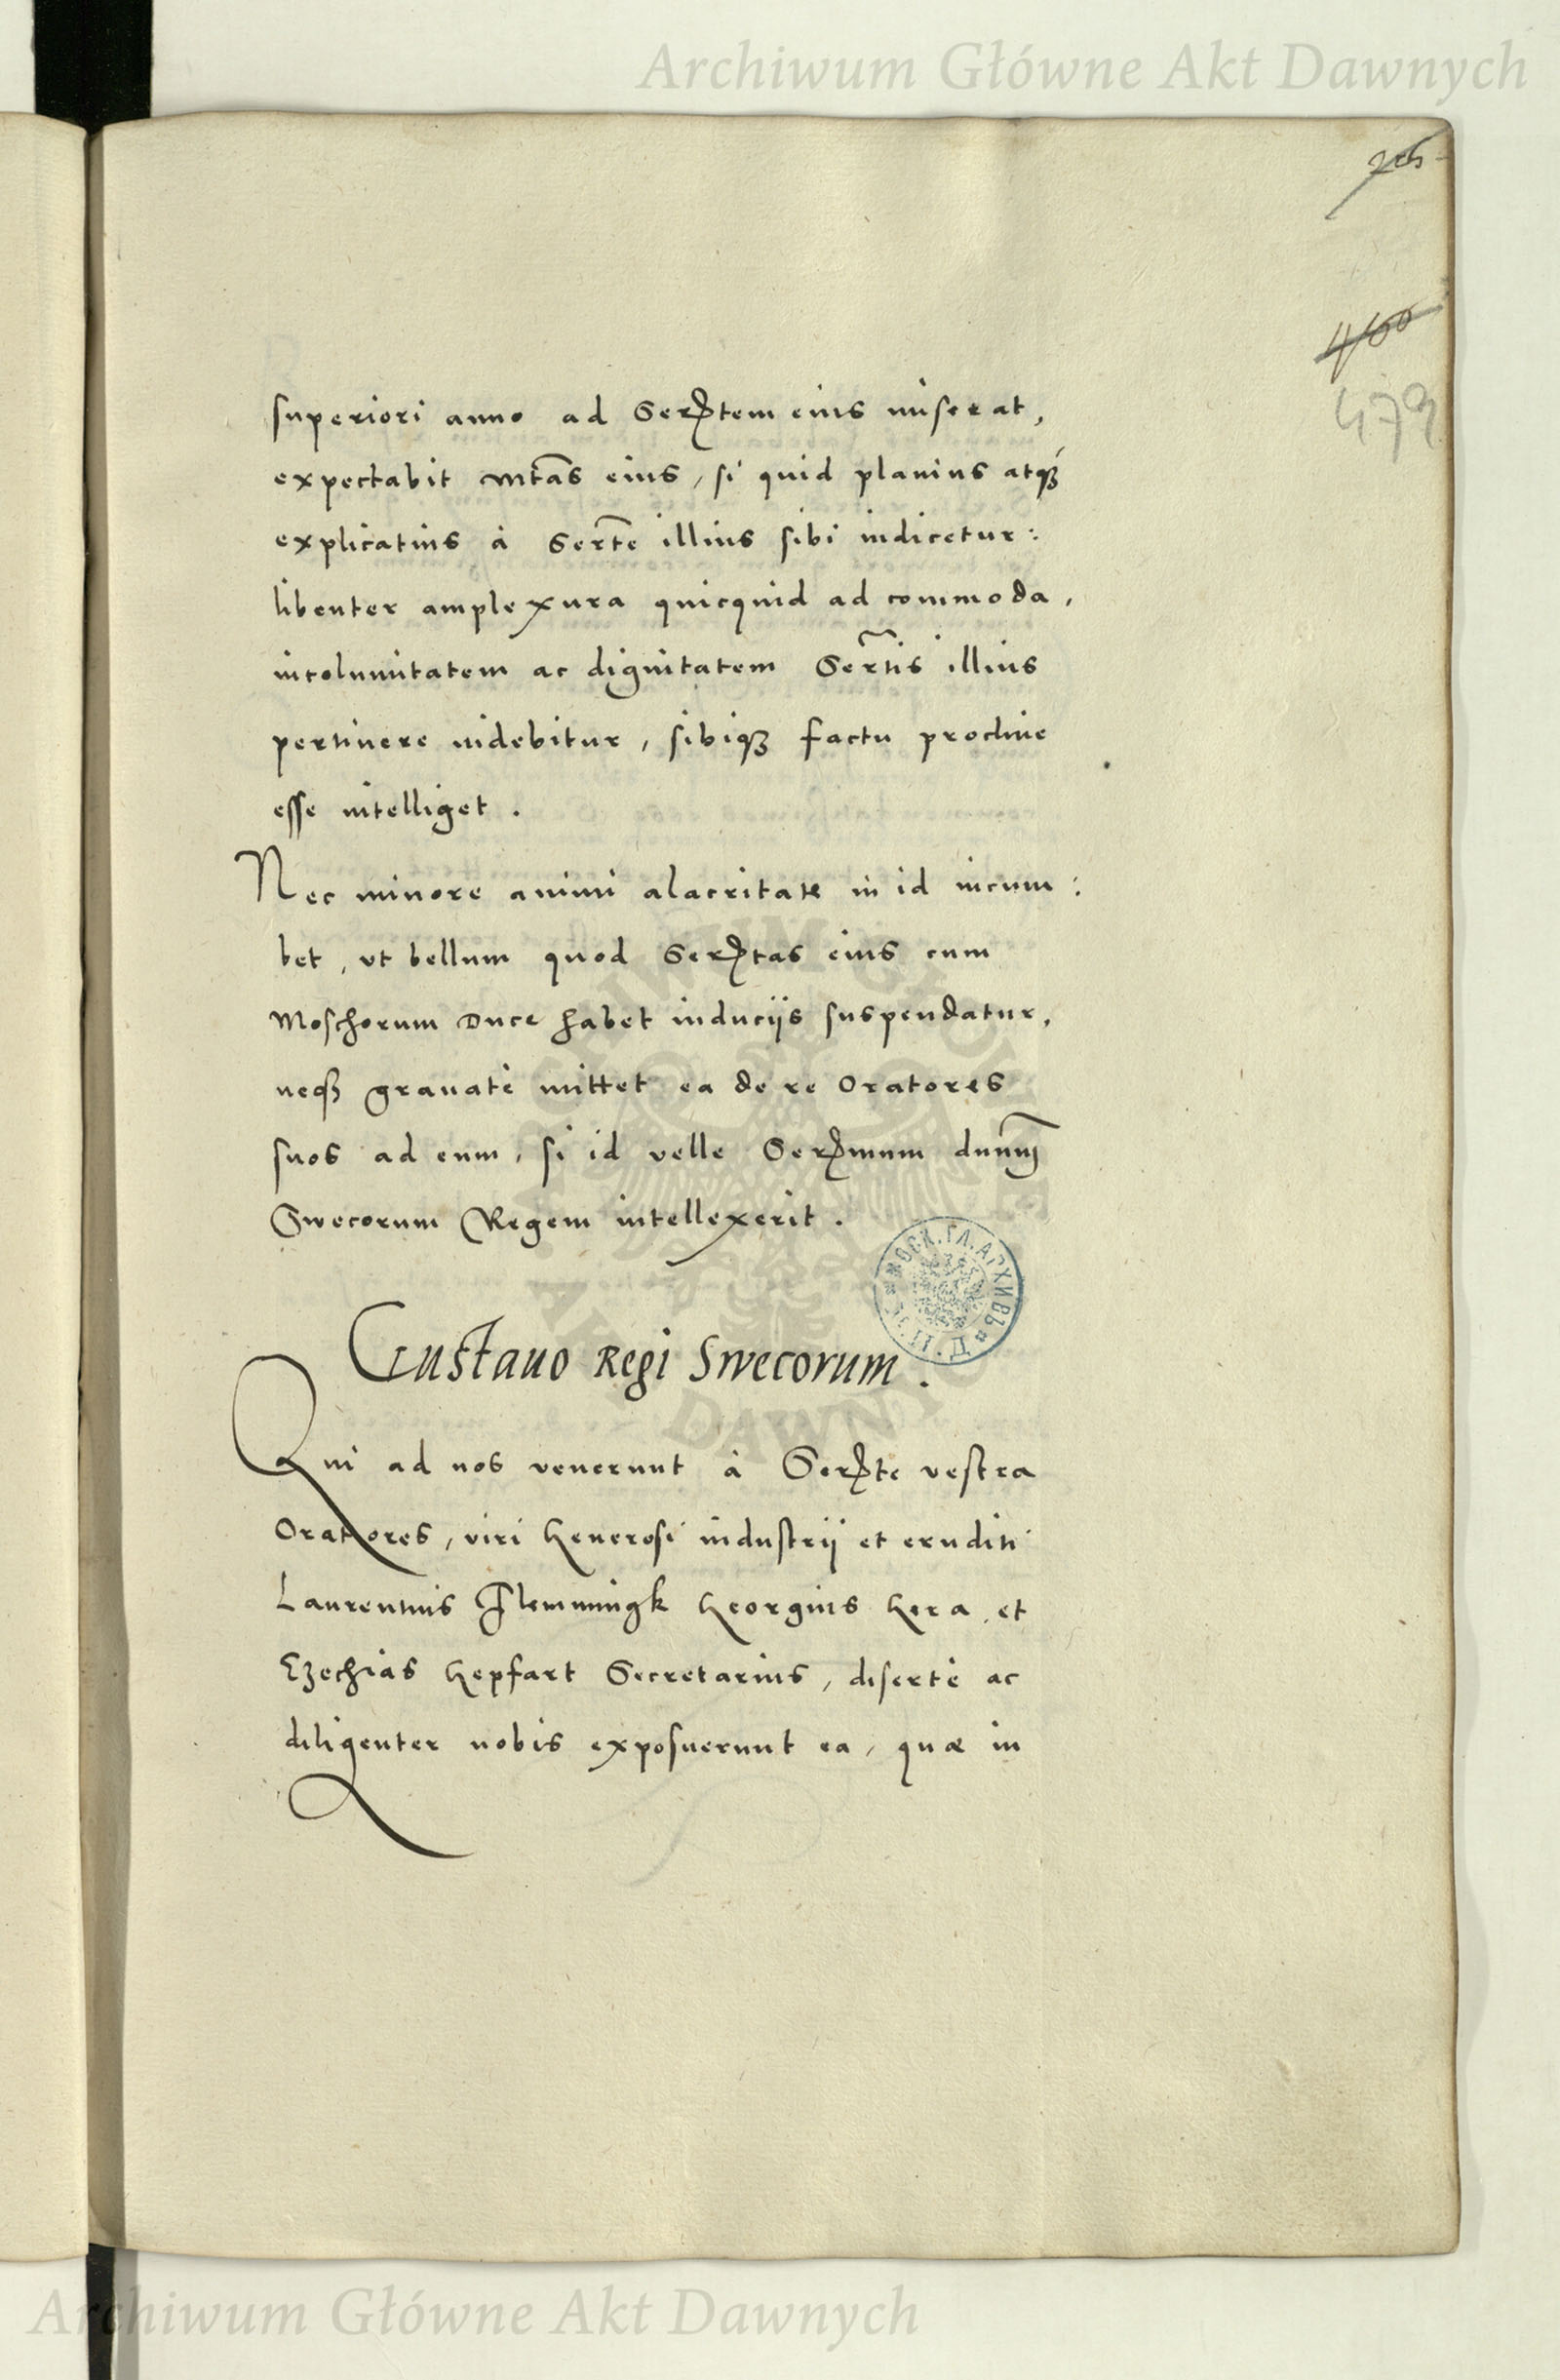 Archiwum Główne Akt Dawnych
460
479
superiori anno ad Serꝑtem eius miserat,
expectabit Mtas eius, si quid planius atqꝫ
explicatius à Serte illius sibi indicetur:
libenter amplexura quicquid ad commoda,
incolumitatem ac dignitatem Sertis illius
pertinere uidebitur, sibiqꝫ factu procliue
esse intelliget.
Nec minore animi alacritate in id incum:
bet, ut bellum quod Serꝑtas eius cum
Moschorum Duce habet induciis suspendatur,
neqꝫ grauatè mittet ea de re Oratores
suos ad eum, si id velle Serꝑmum dnum
Swecorum Regem intellexerit.
Gustauo Regi Swecorum.
Qui ad nos venerunt à Serꝑte vestra
Oratores, viri Generosi industrij et eruditi
Laurentius Flemmingk Georgius Gera, et
Ezechias Gepfart Secretarius, disertè ac
diligenter nobis exposuerunt ea, quæ in
МОСК. ГЛ. АРХИВЪ
Archiwum Główne Akt Dawnych